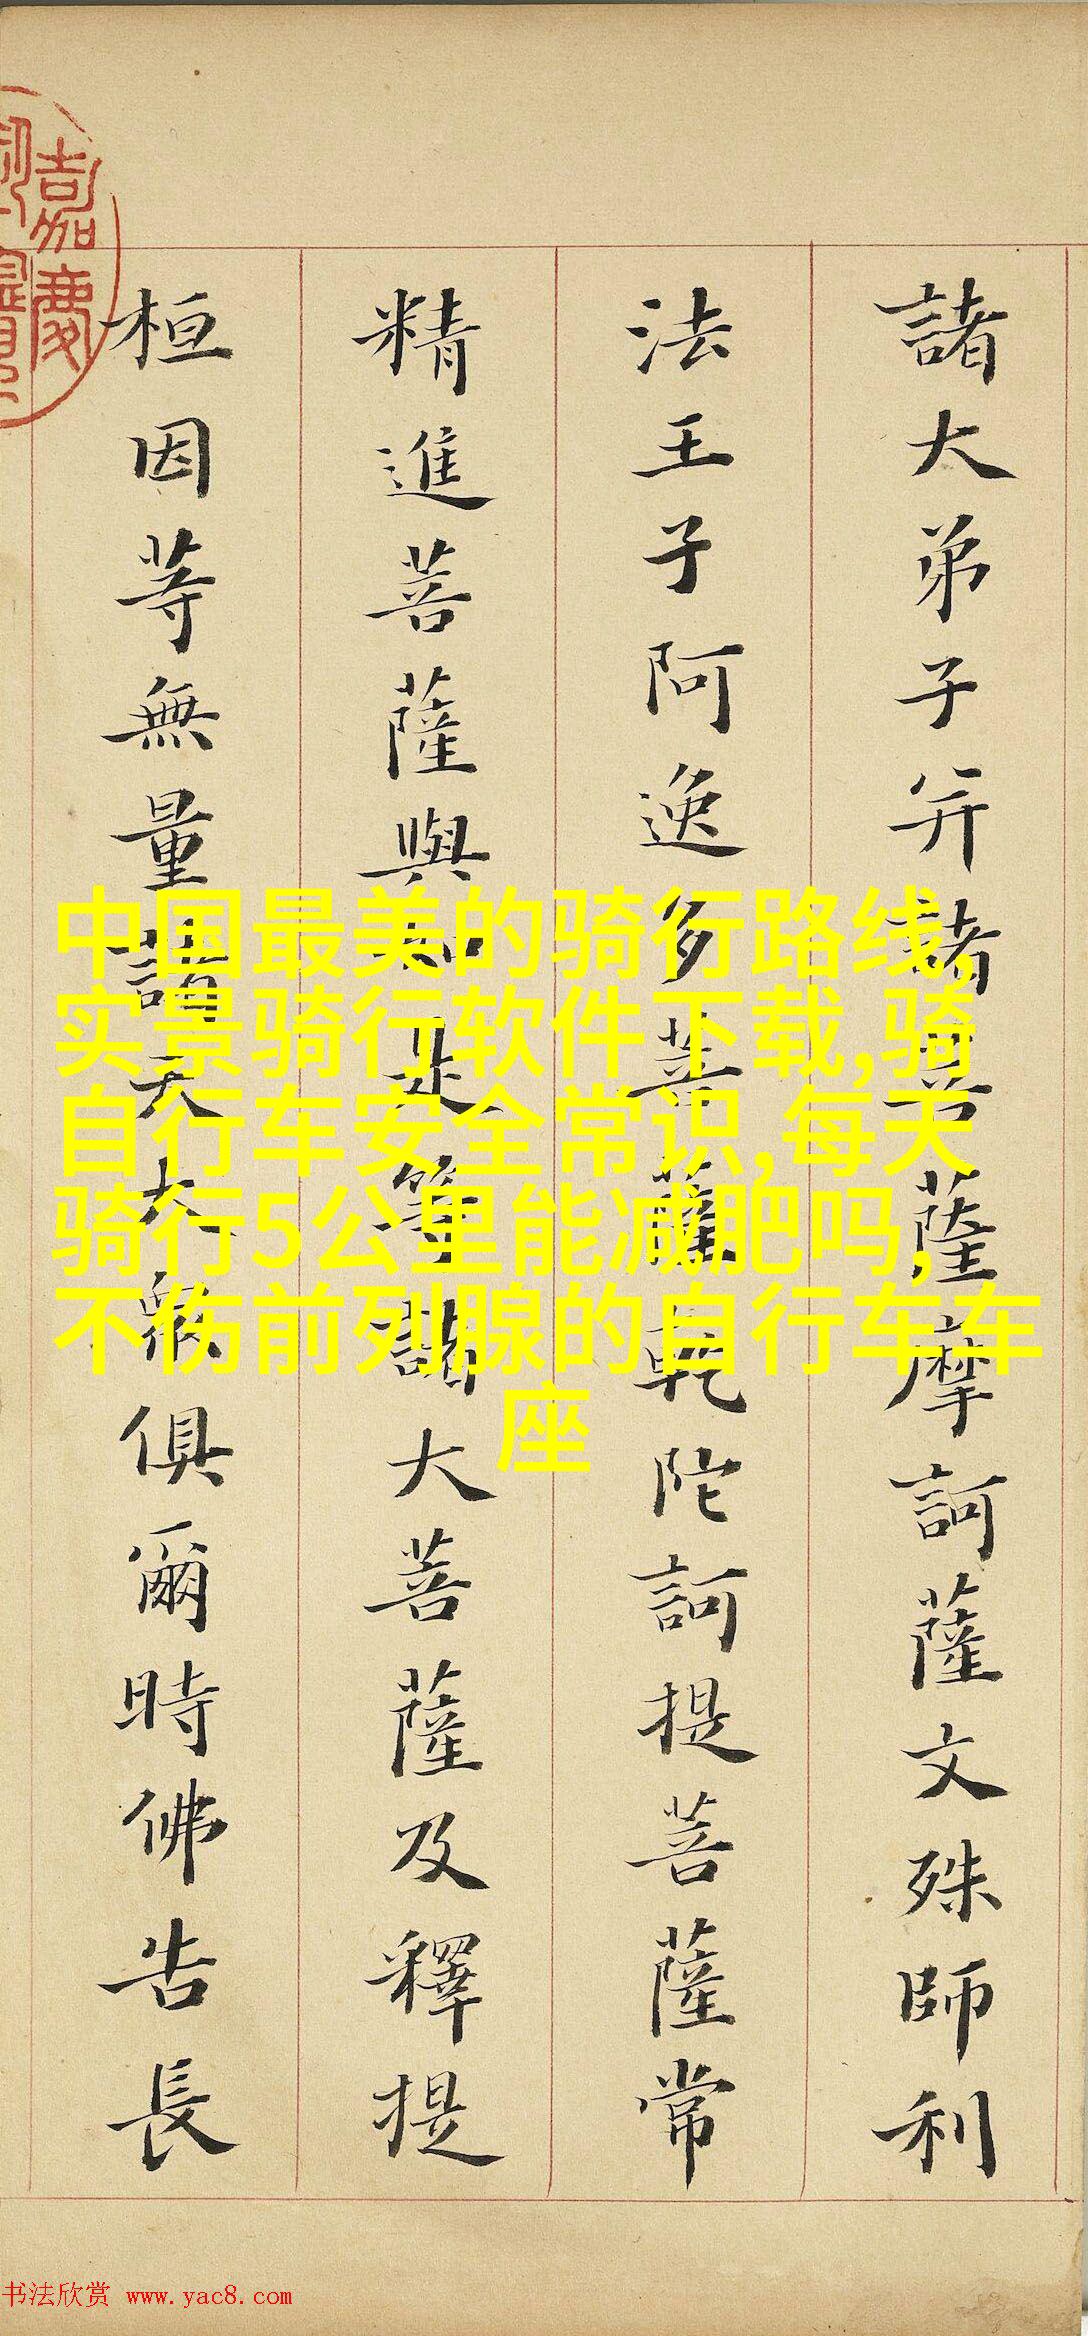 諸大弟子并諸菩薩摩訶薩文殊師利
法王子阿逸多菩薩乾陀訶提菩薩常
精進菩薩與如是等諸大菩薩及釋提
桓因等無量諸天大衆俱爾時佛告長
嘉慶
中国最美的骑行路线,
实景骑行软件下载,骑
自行车安全常识,每天
骑行5公里能减肥吗,
不伤前列腺的自行车车
座
书法欣赏 www.yac8.com